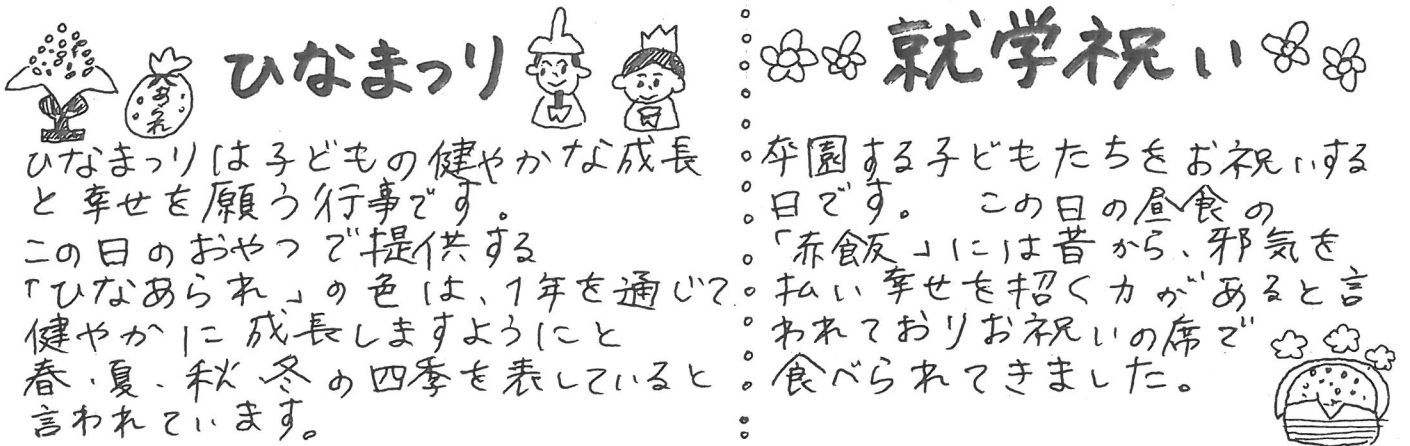 ひなまつり
あられ
ひなまつりは子どもの健やかな成長
と幸せを願う行事です。
この日のおやつで提供する
「ひなあられ」の色は、1年を通じて
健やかに成長しますようにと
春、夏、秋、冬の四季を表していると
言われています。
就学祝い
卒園する子どもたちをお祝いする
日です。 この日の昼食の
「赤飯」には昔から、邪気を
払い幸せを招く力があると言
われておりお祝いの席で
食べられてきました。